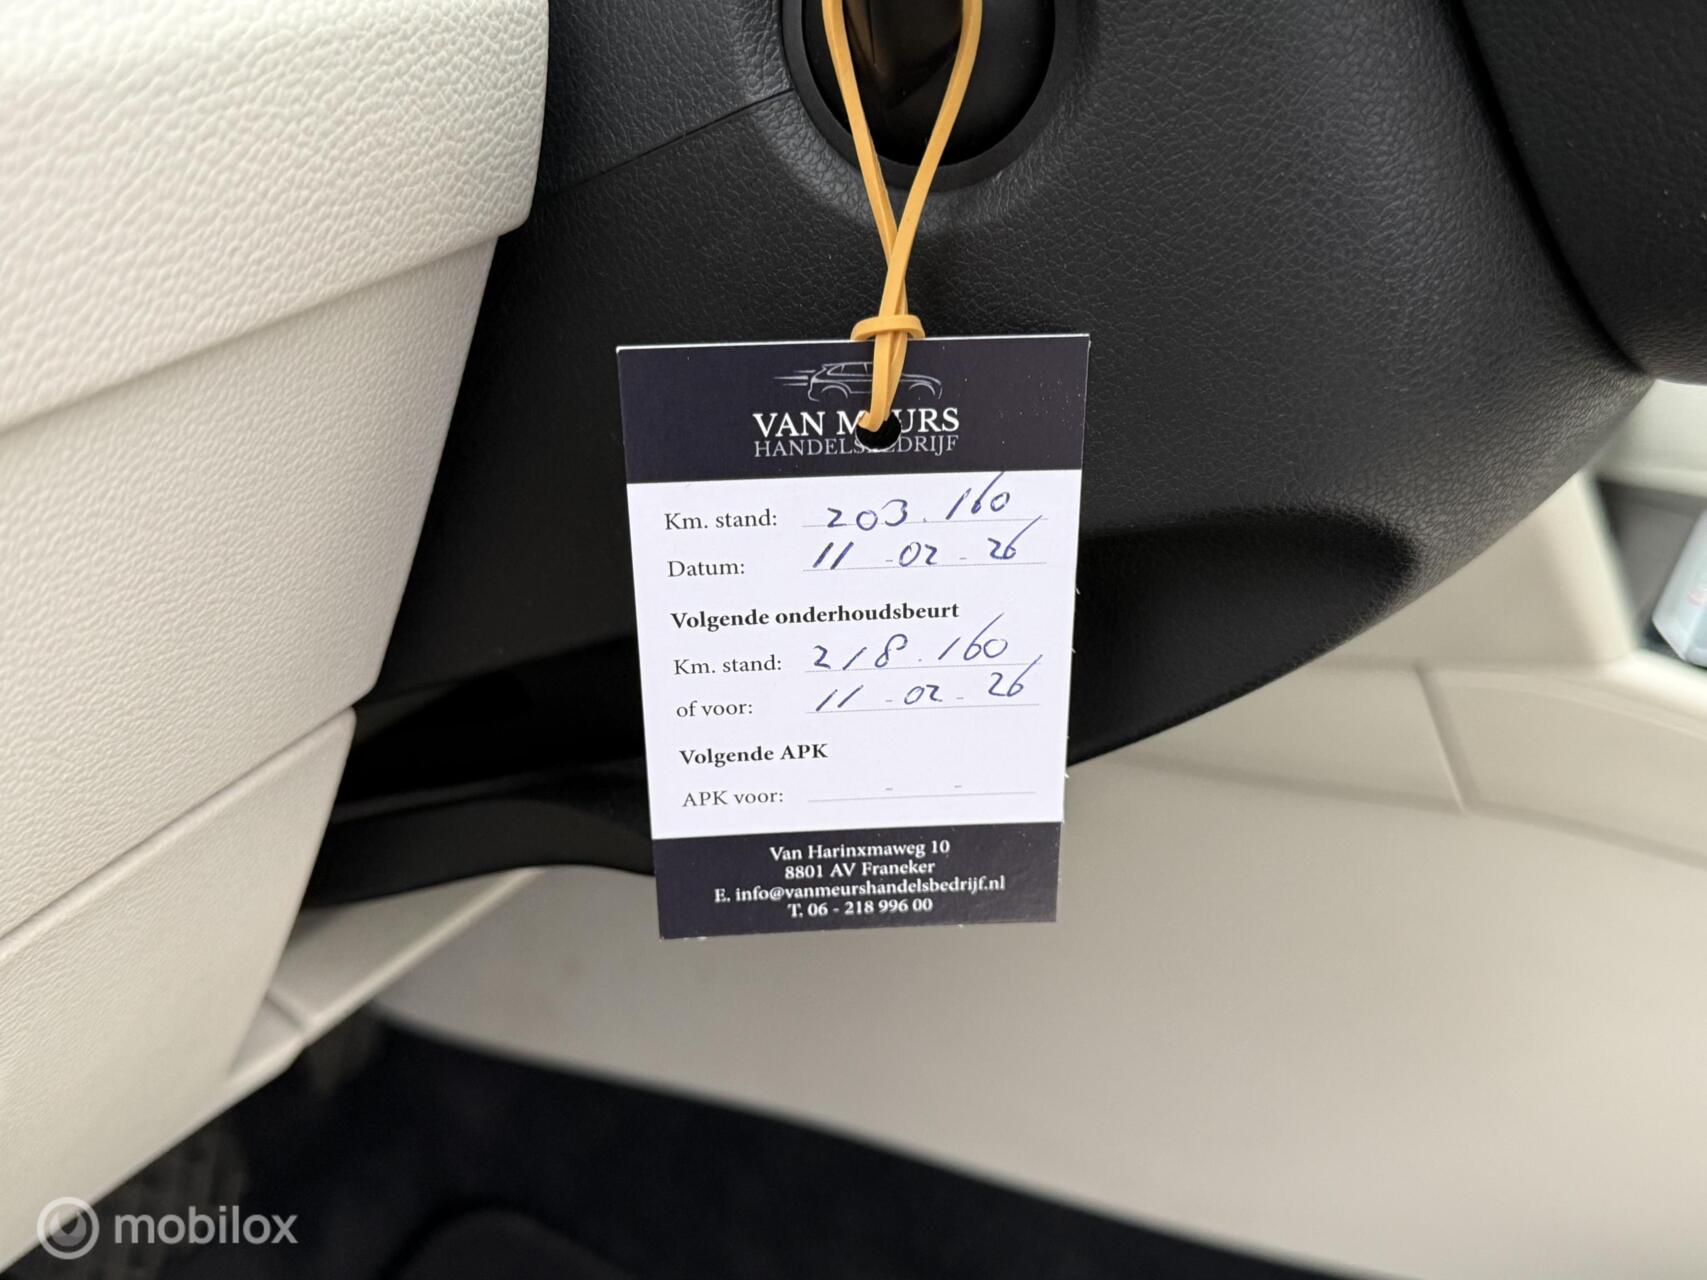 VAN MEURS
HANDELSBEDRIJF
Km. stand: 203.160
Datum: 11-02-26
Volgende onderhoudsbeurt
Km. stand: 218.160
of voor: 11-02-26
Volgende APK
APK voor: - -
Van Harinxmaweg 10
8801 AV Franeker
E. info@vanmeurshandelsbedrijf.nl
T. 06 - 218 996 00
mobilox